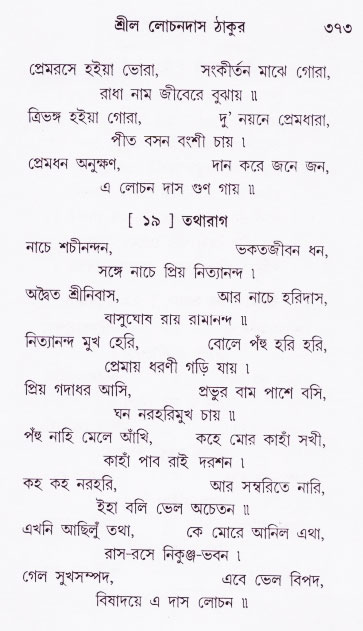 শ্রীল লোচনদাস ঠাকুর ৩৭৩
প্রেমরসে হইয়া ভোরা, সংকীর্তন মাঝে গোরা,
রাধা নাম জীবেরে বুঝায় ॥
ত্রিভঙ্গ হইয়া গোরা, দু' নয়নে প্রেমধারা,
পীত বসন বংশী চায় ।
প্রেমধন অনুক্ষণ, দান করে জনে জন,
এ লোচন দাস গুণ গায় ॥
[ ১৯ ] তথারাগ
নাচে শচীনন্দন, ভকতজীবন ধন,
সঙ্গে নাচে প্রিয় নিত্যানন্দ ।
অদ্বৈত শ্রীনিবাস, আর নাচে হরিদাস,
বাসুঘোষ রায় রামানন্দ ॥
নিত্যানন্দ মুখ হেরি, বোলে পঁহু হরি হরি,
প্রেমায় ধরণী গড়ি যায় ।
প্রিয় গদাধর আসি, প্রভুর বাম পাশে বসি,
ঘন নরহরিমুখ চায় ॥
পঁহু নাহি মেলে আঁখি, কহে মোর কাহাঁ সখী,
কাহাঁ পাব রাই দরশন ।
কহ কহ নরহরি, আর সম্বরিতে নারি,
ইহা বলি ভেল অচেতন ॥
এখনি আছিলুঁ তথা, কে মোরে আনিল এথা,
রাস-রসে নিকুঞ্জ-ভবন ।
গেল সুখসম্পদ, এবে ভেল বিপদ,
বিষাদয়ে এ দাস লোচন ॥